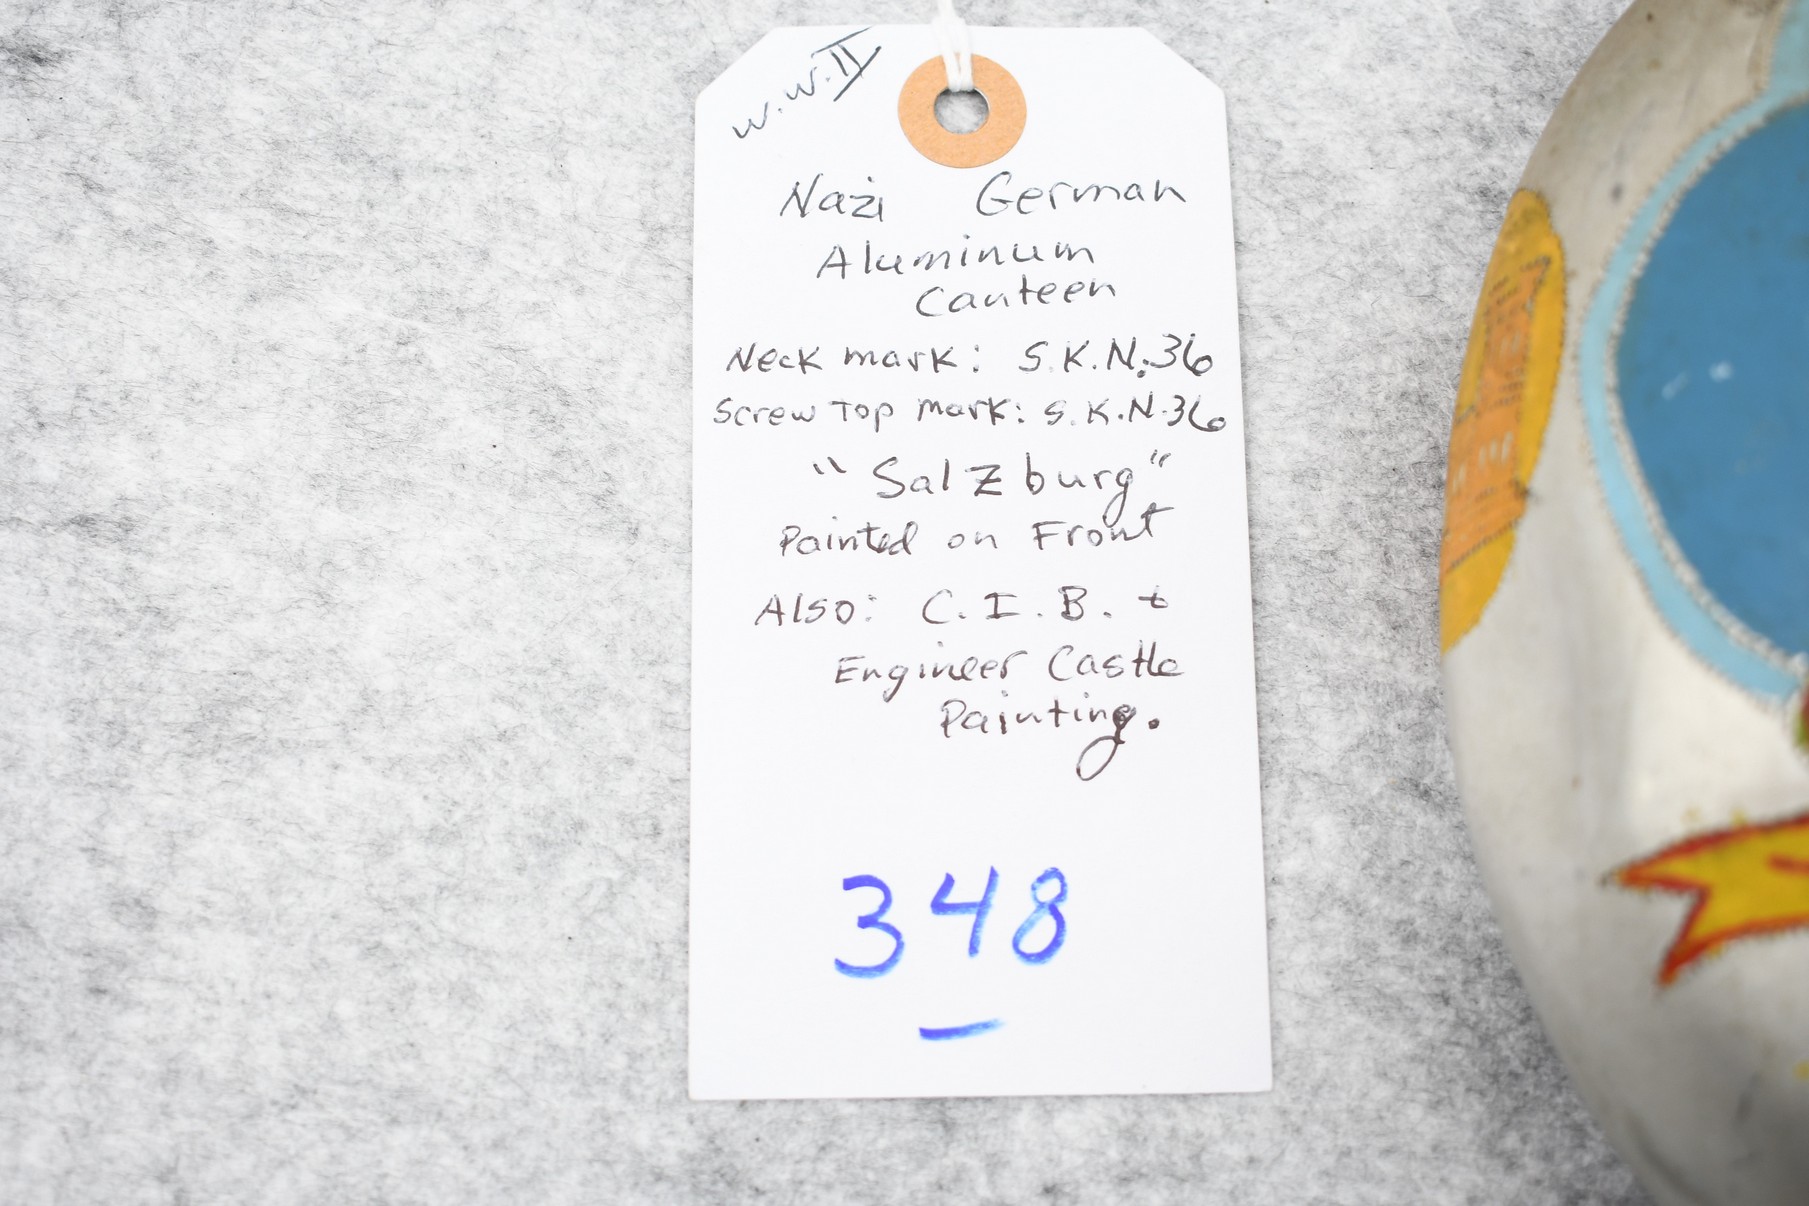 W.W.II
Nazi German
Aluminum
Canteen
Neck mark: S.K.N.36
Screw Top mark: S.K.N.36
"Salzburg"
Painted on Front
Also: C.I.B. +
Engineer Castle
Painting.
348